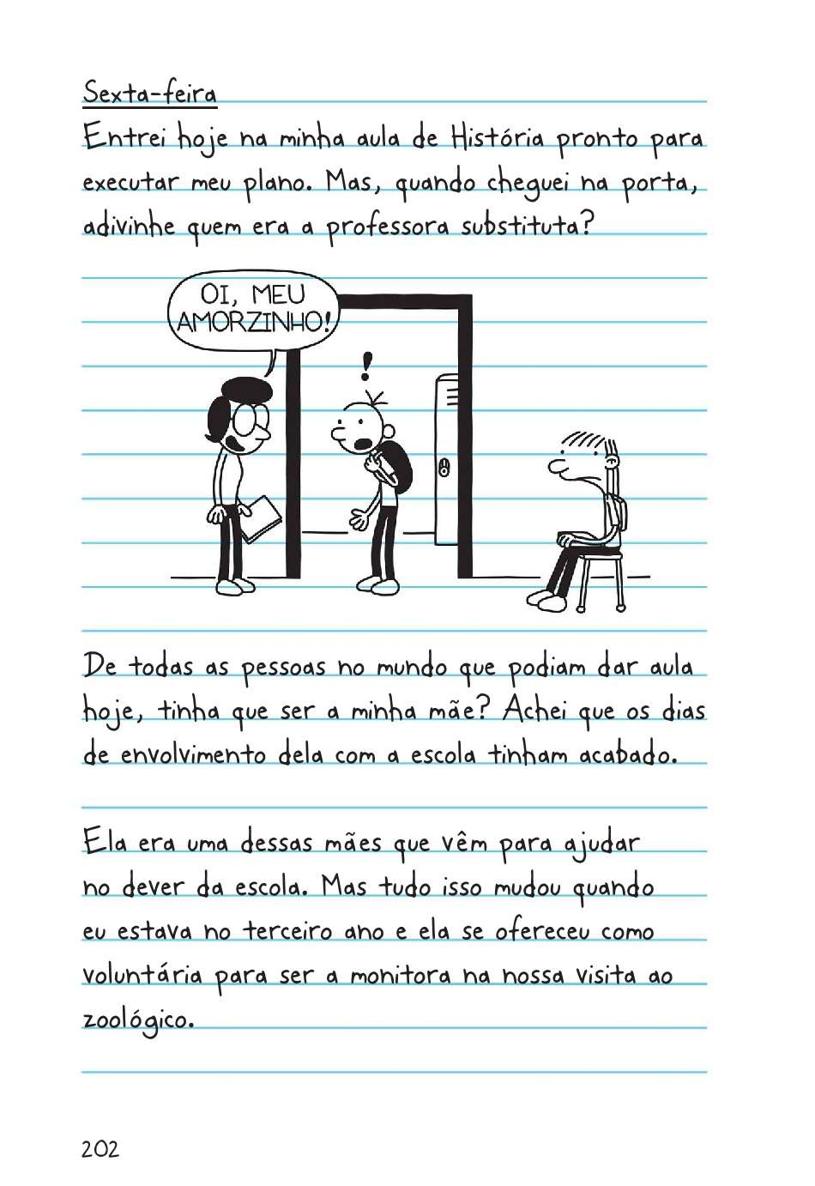 Sexta-feira
Entrei hoje na minha aula de História pronto para
executar meu plano. Mas, quando cheguei na porta,
adivinhe quem era a professora substituta?
OI, MEU
AMORZINHO!
!
De todas as pessoas no mundo que podiam dar aula
hoje, tinha que ser a minha mãe? Achei que os dias
de envolvimento dela com a escola tinham acabado.
Ela era uma dessas mães que vêm para ajudar
no dever da escola. Mas tudo isso mudou quando
eu estava no terceiro ano e ela se ofereceu como
voluntária para ser a monitora na nossa visita ao
zoológico.
202